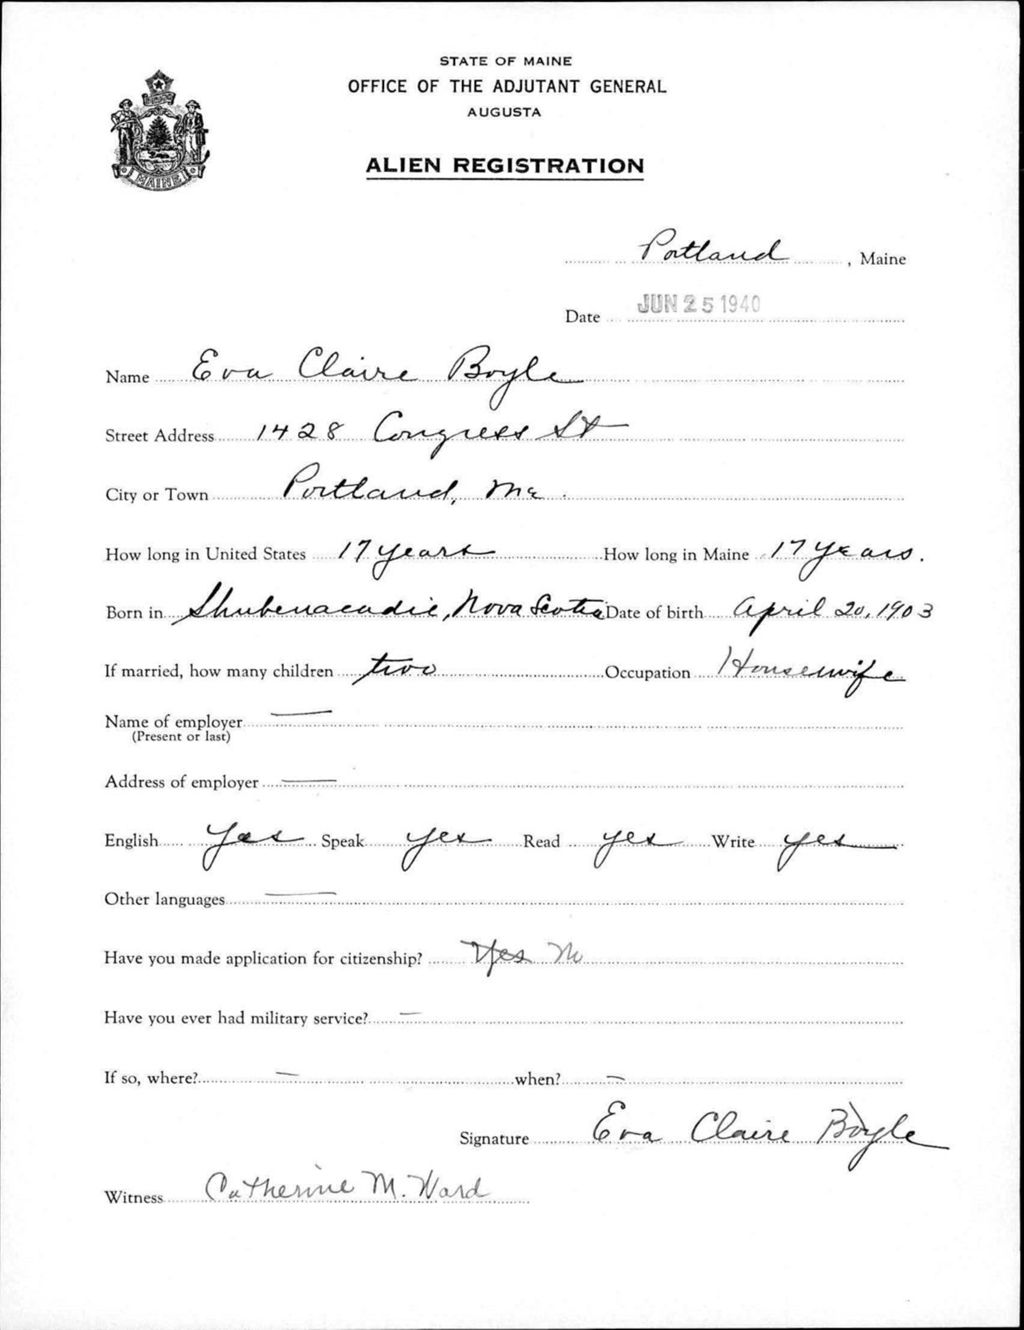 STATE OF MAINE
OFFICE OF THE ADJUTANT GENERAL
AUGUSTA
ALIEN REGISTRATION
MAINE
Portland, Maine
Date JUN 25 1940
Name Eva Claire Boyle
Street Address 1428 Congress St
City or Town Portland, Me.
How long in United States 17 years How long in Maine 17 years.
Born in Shubenacadie, Nova Scotia Date of birth April 20, 1903
If married, how many children two Occupation Housewife
Name of employer —
(Present or last)
Address of employer —
English Yes Speak yes Read yes Write yes
Other languages —
Have you made application for citizenship? Yes No
Have you ever had military service? —
If so, where? — when? —
Signature Eva Claire Boyle
Witness Catherine M. Ward